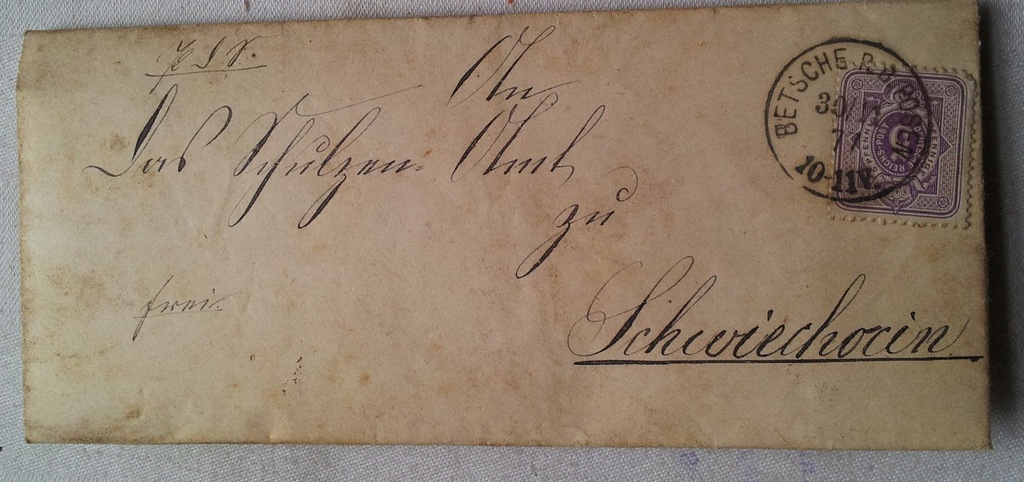 An
Das Schulzen-Amt
zu
Schwiechocin
frei.
BETSCHE R.B. POSEN
30
10-11V.
5
PFENNIG